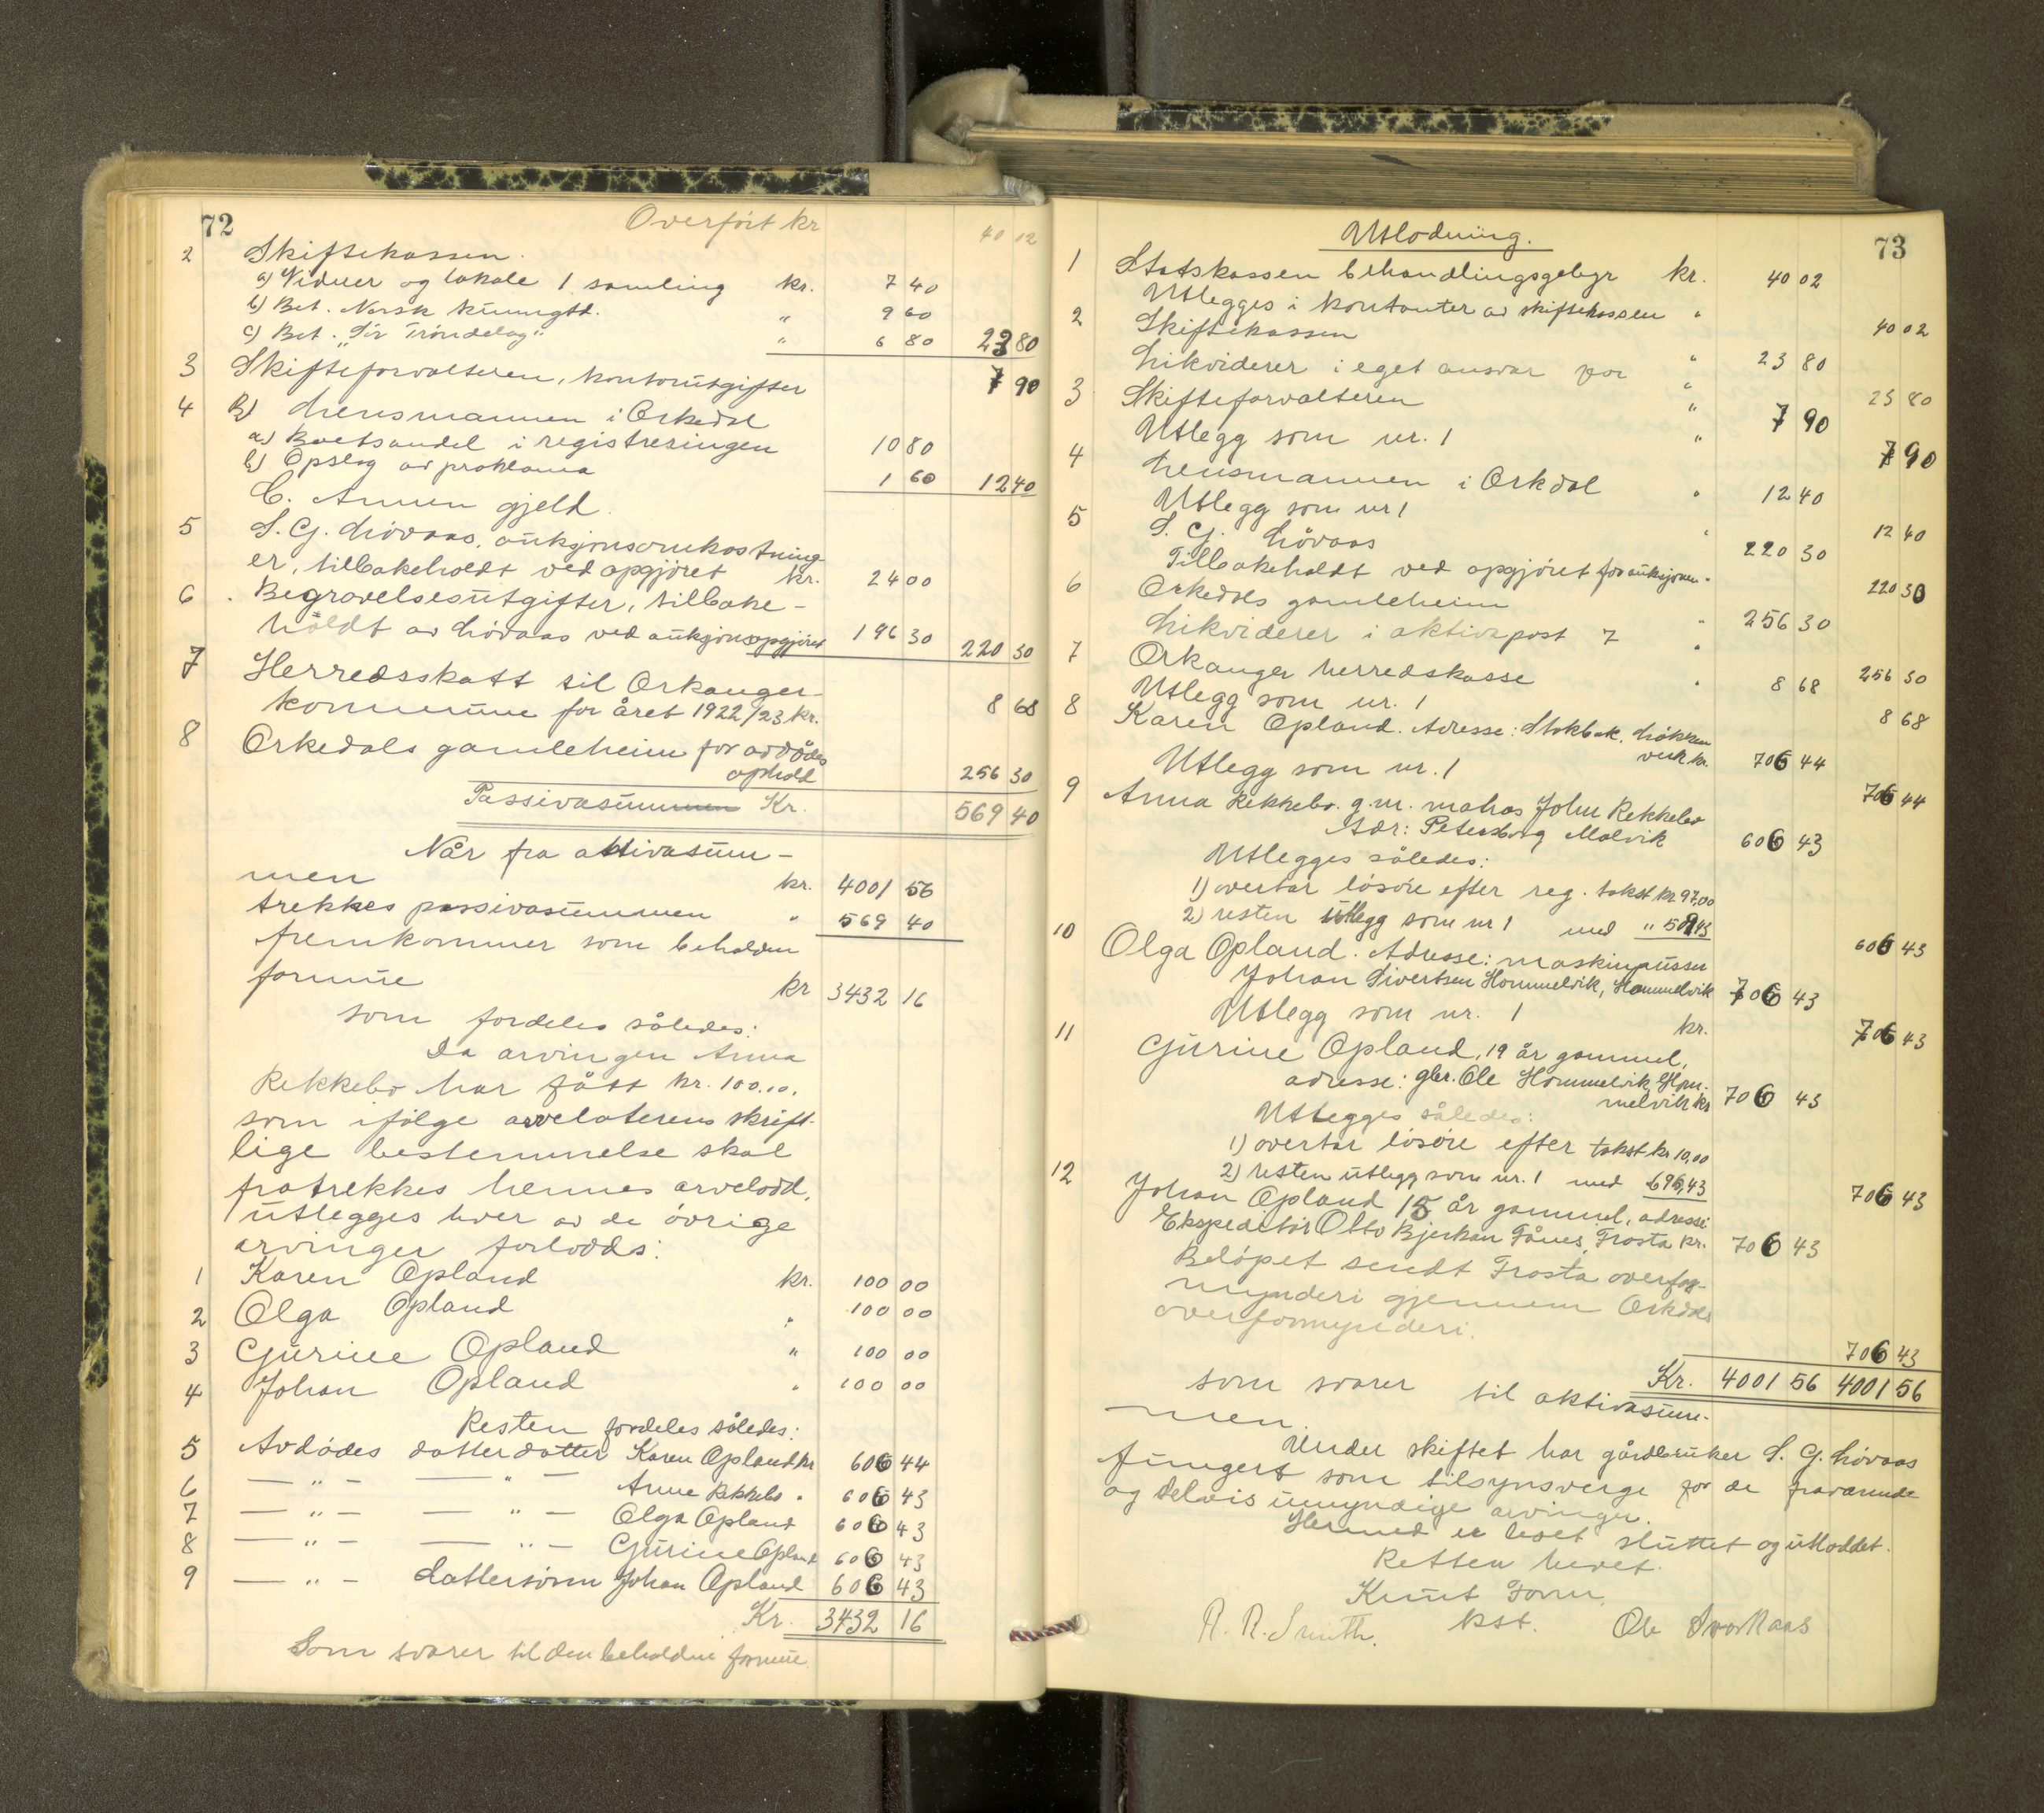 72
Overført kr 40 12
2 Skiftekassen.
a) Vidner og lokale 1 samling kr. 7 40
b) Bet. Norsk kunngtd. " 9 60
c) Bet. "Sør Trøndelag" " 6 80 23 80
3 Skifteforvalteren, kontorutgifter 7 90
4 B) Lensmannen i Orkedal
a) Boetsandel i registreringen 10 80
b) Opslag av proklama 1 60 12 40
C. Annen gjeld.
5 S. G. Løvaas, auksjonsomkostning-
er, tilbakeholdt ved opgjøret kr. 24 00
6 Begravelsesutgifter, tilbake-
holdt av Løvaas ved auksjonsopgjøret 196 30 220 30
7 Herredsskatt til Orkanger
kommune for året 1922/23 kr. 8 68
8 Orkedals gamleheim for avdødes
ophold 256 30
Passivasummen Kr. 569 40
Når fra aktivasum-
men kr. 4001 56
trekkes passivasummen " 569 40
fremkommer som beholden
formue kr 3432 16
som fordeles således:
Da arvingen Anna
Rekkebo har fått kr. 100,00,
som ifølge arvelaterens skrift-
lige bestemmelse skal
fratrekkes hennes arvelodd,
utlegges hver av de øvrige
arvinger forlodds:
1 Karen Opland kr. 100 00
2 Olga Opland " 100 00
3 Gurine Opland " 100 00
4 Johan Opland " 100 00
Resten fordeles således:
5 Avdødes datterdatter Karen Opland kr 606 44
6 — " — — " — Anna Rekkebo " 606 43
7 — " — — " — Olga Opland 606 43
8 — " — — " — Gurine Opland 606 43
9 — " — dattersønn Johan Opland 606 43
Kr. 3432 16
Som svarer til den beholdne formue
73
Utlodning.
1 Statskassen behandlingsgebyr kr. 40 02
Utlegges i kontanter av skiftekassen " 40 02
2 Skiftekassen " 23 80
Likviderer i eget ansvar for " 23 80
3 Skifteforvalteren " 7 90
Utlegg som nr. 1 " 7 90
4 Lensmannen i Orkdal " 12 40
Utlegg som nr 1 " 12 40
5 S. G. Løvaas 220 30
Tilbakeholdt ved opgjøret for auksjonen " 220 30
6 Orkedals gamleheim " 256 30
Likviderer i aktivapost 7 " 256 30
7 Orkanger herredskasse " 8 68
Utlegg som nr. 1 8 68
8 Karen Opland. Adresse: Stokbak, Løkken
verk kr. 706 44
Utlegg som nr. 1 706 44
9 Anna Rekkebo. g.m. matros John Rekkebo
Adr: Petersborg Malvik 606 43
Utlegges således:
1) overtar løsøre efter reg. takst kr. 97,00
2) resten utlegg som nr 1 med " 509,43 606 43
10 Olga Opland. Adresse: maskinpusser
Johan Sivertsen Hommelvik, Hommelvik 706 43
Utlegg som nr. 1 kr. 706 43
11 Gurine Opland, 19 år gammel,
adresse: gbr. Ole Hommelvik, Hom-
melvik kr 706 43
Utlegges således:
1) overtar løsøre efter takst kr 10,00
2) resten utlegg som nr. 1 med 696,43 706 43
12 Johan Opland 15 år gammel, adresse
Ekspeditør Otto Bjerkan Fånes, Frosta kr. 706 43
Beløpet sendt Frosta overfor-
mynderi gjennem Orkdals
overformynderi. 706 43
Kr. 4001 56 4001 56
som svarer til aktivasum-
men.
Under skiftet har gårdbruker S. G. Løvaas
fungert som tilsynsverge for de fraværende
og delvis umyndige arvinger.
Hermed er boet sluttet og utloddet.
Retten hevet.
Knut Form
kst.
R. R. Smith. Ole